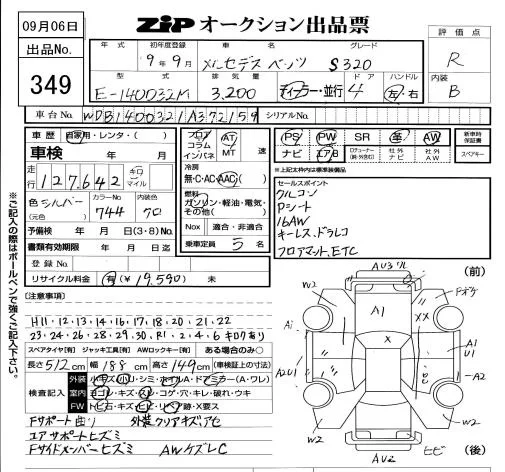 09月06日
ZiP オークション出品票
出品No.
349
年式 初年度登録 車名 グレード
9年9月 メルセデスベンツ S320
型式 排気量 ドア ハンドル
E-140032M 3,200 ディーラー・並行 4 左・右
評価点
R
内装
B
車台No. WDB1400321A372159 シリアルNo.
車歴 自家用・レンタ・( )
車検 年 月
走行 127,642 キロ マイル
色 シルバー カラーNo. 内装色
(元色) 744 グレ
予備検 年 月 日(3・8)
書類有効期限 年 月 日迄
登録No.
リサイクル料金 有(¥19,590) 未
フロア コラム インパネ AT MT 速
冷房
無・C・AC・AAC( )
燃料
ガソリン・軽油・電気・その他( )
Nox 適合・非適合
乗車定員 5 名
PS PW SR 革 AW 新車時保証書
ナビ エアB 社外ナビ 社外AW スペアキー
※上記太枠内は標準装備品
セールスポイント
クルコン
Pシート
16AW
キーレス、ドラレコ
フロアマット、ETC
※ご記入の際はボールペンで強くご記入下さい。
【注意事項】
H11・12・13・14・16・17・18・20・21・22
23・24・26・28・29・30、R1・2・4・6 キロクあり
スペアタイヤ【有】 ジャッキ工具【有】 AWロックキー【有】 ある場合のみ○
長さ 512 cm 幅 188 cm 高さ 149 cm (車検証上の寸法)
検査記入
外装 小キズ・小U・シミ・ホイルA・ドアミラー(A・ワレ)
室内 ヨゴレ・キズ・スレ・コゲ・穴・キレ・破れ・ウキ
FW トビ石・キズ・ヒビ・リペア跡・X要ス
Fサポート曲り 外装クリアキズアセ
コアサポートヒズミ
FサイドメンバーヒズミAWケズレC
(前)
AU3ワレ
W2
W2
Fボケ
A1
XX
X
Ai
A1
U1
A2U1
A2
W2
W2
AU2
ヒビ
(後)